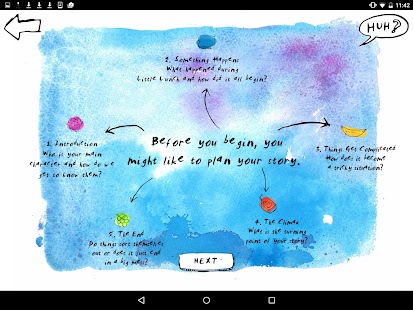 11:42
HUH?
2. Something Happens
What happened during
Little Lunch and how did it all begin?
1. Introduction
Who is your main
character and how do we
get to know them?
Before you begin, you
might like to plan your story.
3. Things Get Complicated
How does it become
a sticky situation?
4. The Climax
What is the turning
point of your story?
5. The End
Do things sort themselves
out or does it just end
in a big mess?
NEXT